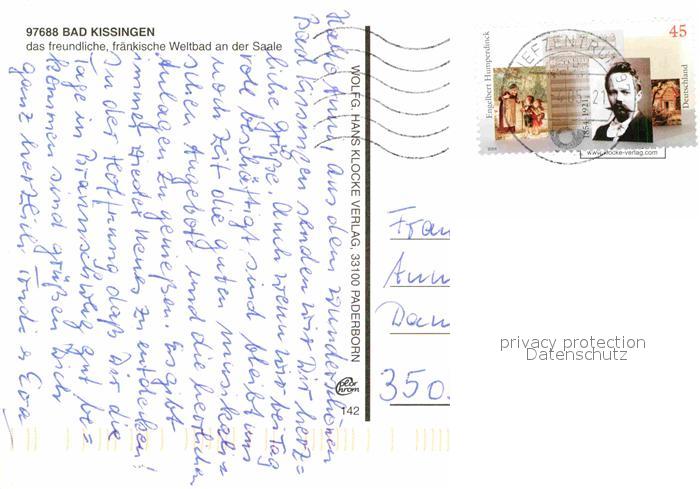 97688 BAD KISSINGEN
das freundliche, fränkische Weltbad an der Saale
Hallo Anni, aus dem wunderschönen
Bad Kissingen senden wir Dir herz=
liche Grüße. Auch wenn wir bei Tag
voll beschäftigt sind bleibt uns
noch Zeit die guten musikali=
schen Angebote und die herrlichen
Anlagen zu genießen. Es gibt
immer wieder neues zu entdecken!
In der Hoffnung daß Dir die
Tage in Braunschweig gut be=
kommen sind grüßen Dich
ganz herzlich & Eva
WOLFG. HANS KLOCKE VERLAG, 33100 PADERBORN
142
Engelbert Humperdinck
1854-1921
45
Deutschland
BRIEFZENTRUM
www.klocke-verlag.com
Frau
Ann
Dan
350
privacy protection
Datenschutz